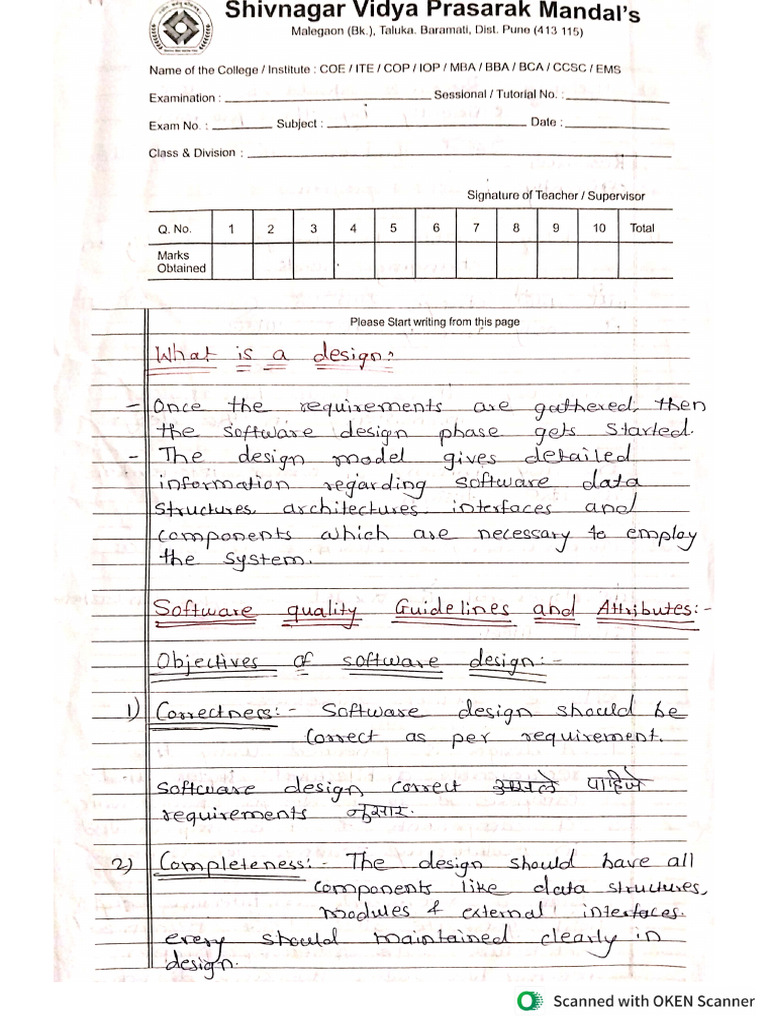 Shivnagar Vidya Prasarak Mandal's
Malegaon (Bk.), Taluka. Baramati, Dist. Pune (413 115)
Name of the College / Institute : COE / ITE / COP / IOP / MBA / BBA / BCA / CCSC / EMS
Examination : Sessional / Tutorial No. :
Exam No. : Subject : Date :
Class & Division :
Signature of Teacher / Supervisor
Q. No. 1 2 3 4 5 6 7 8 9 10 Total
Marks
Obtained
Please Start writing from this page
What is a design:
- Once the requirements are gathered, then
the software design phase gets started.
- The design model gives detailed
information regarding software data
structures, architectures, interfaces and
components which are necessary to employ
the system.
Software quality Guidelines and Attributes:-
Objectives of software design:-
1) Correctness:- Software design should be
correct as per requirement.
Software design correct असले पाहिजे
requirements नुसार.
2) Completeness:- The design should have all
components like data structures,
modules & external interfaces.
every should maintained clearly in
design.
Scanned with OKEN Scanner